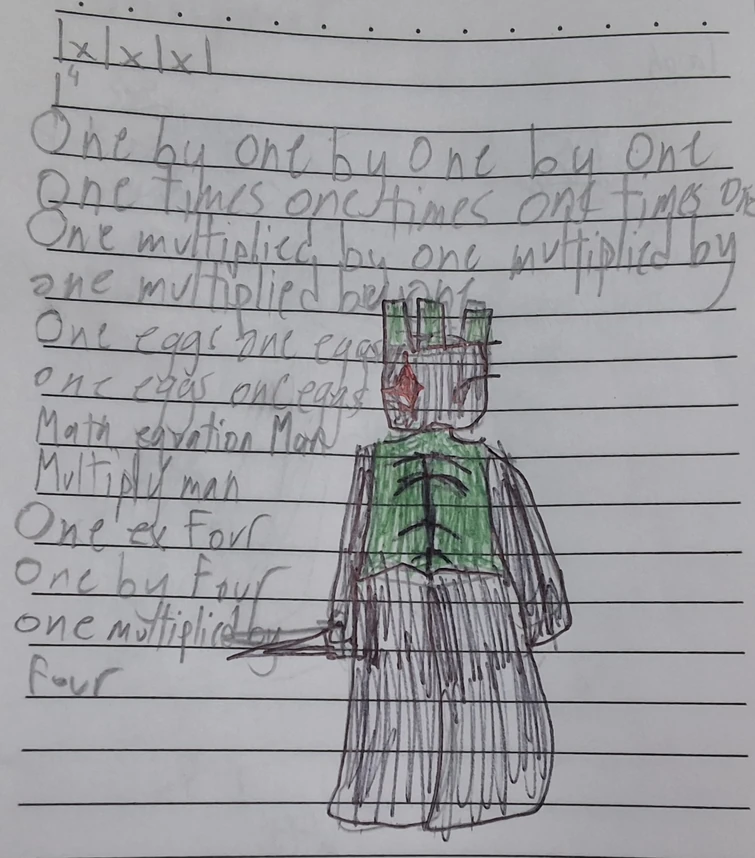 1x1x1x1
1⁴
One by one by One by One
One times one times one times One
One multiplied by one multiplied by
one multiplied by one
One eggs one eggs
one eggs one eggs
Math eqvation Man
Multiply man
One ex Four
One by Four
one multiplied by
Four